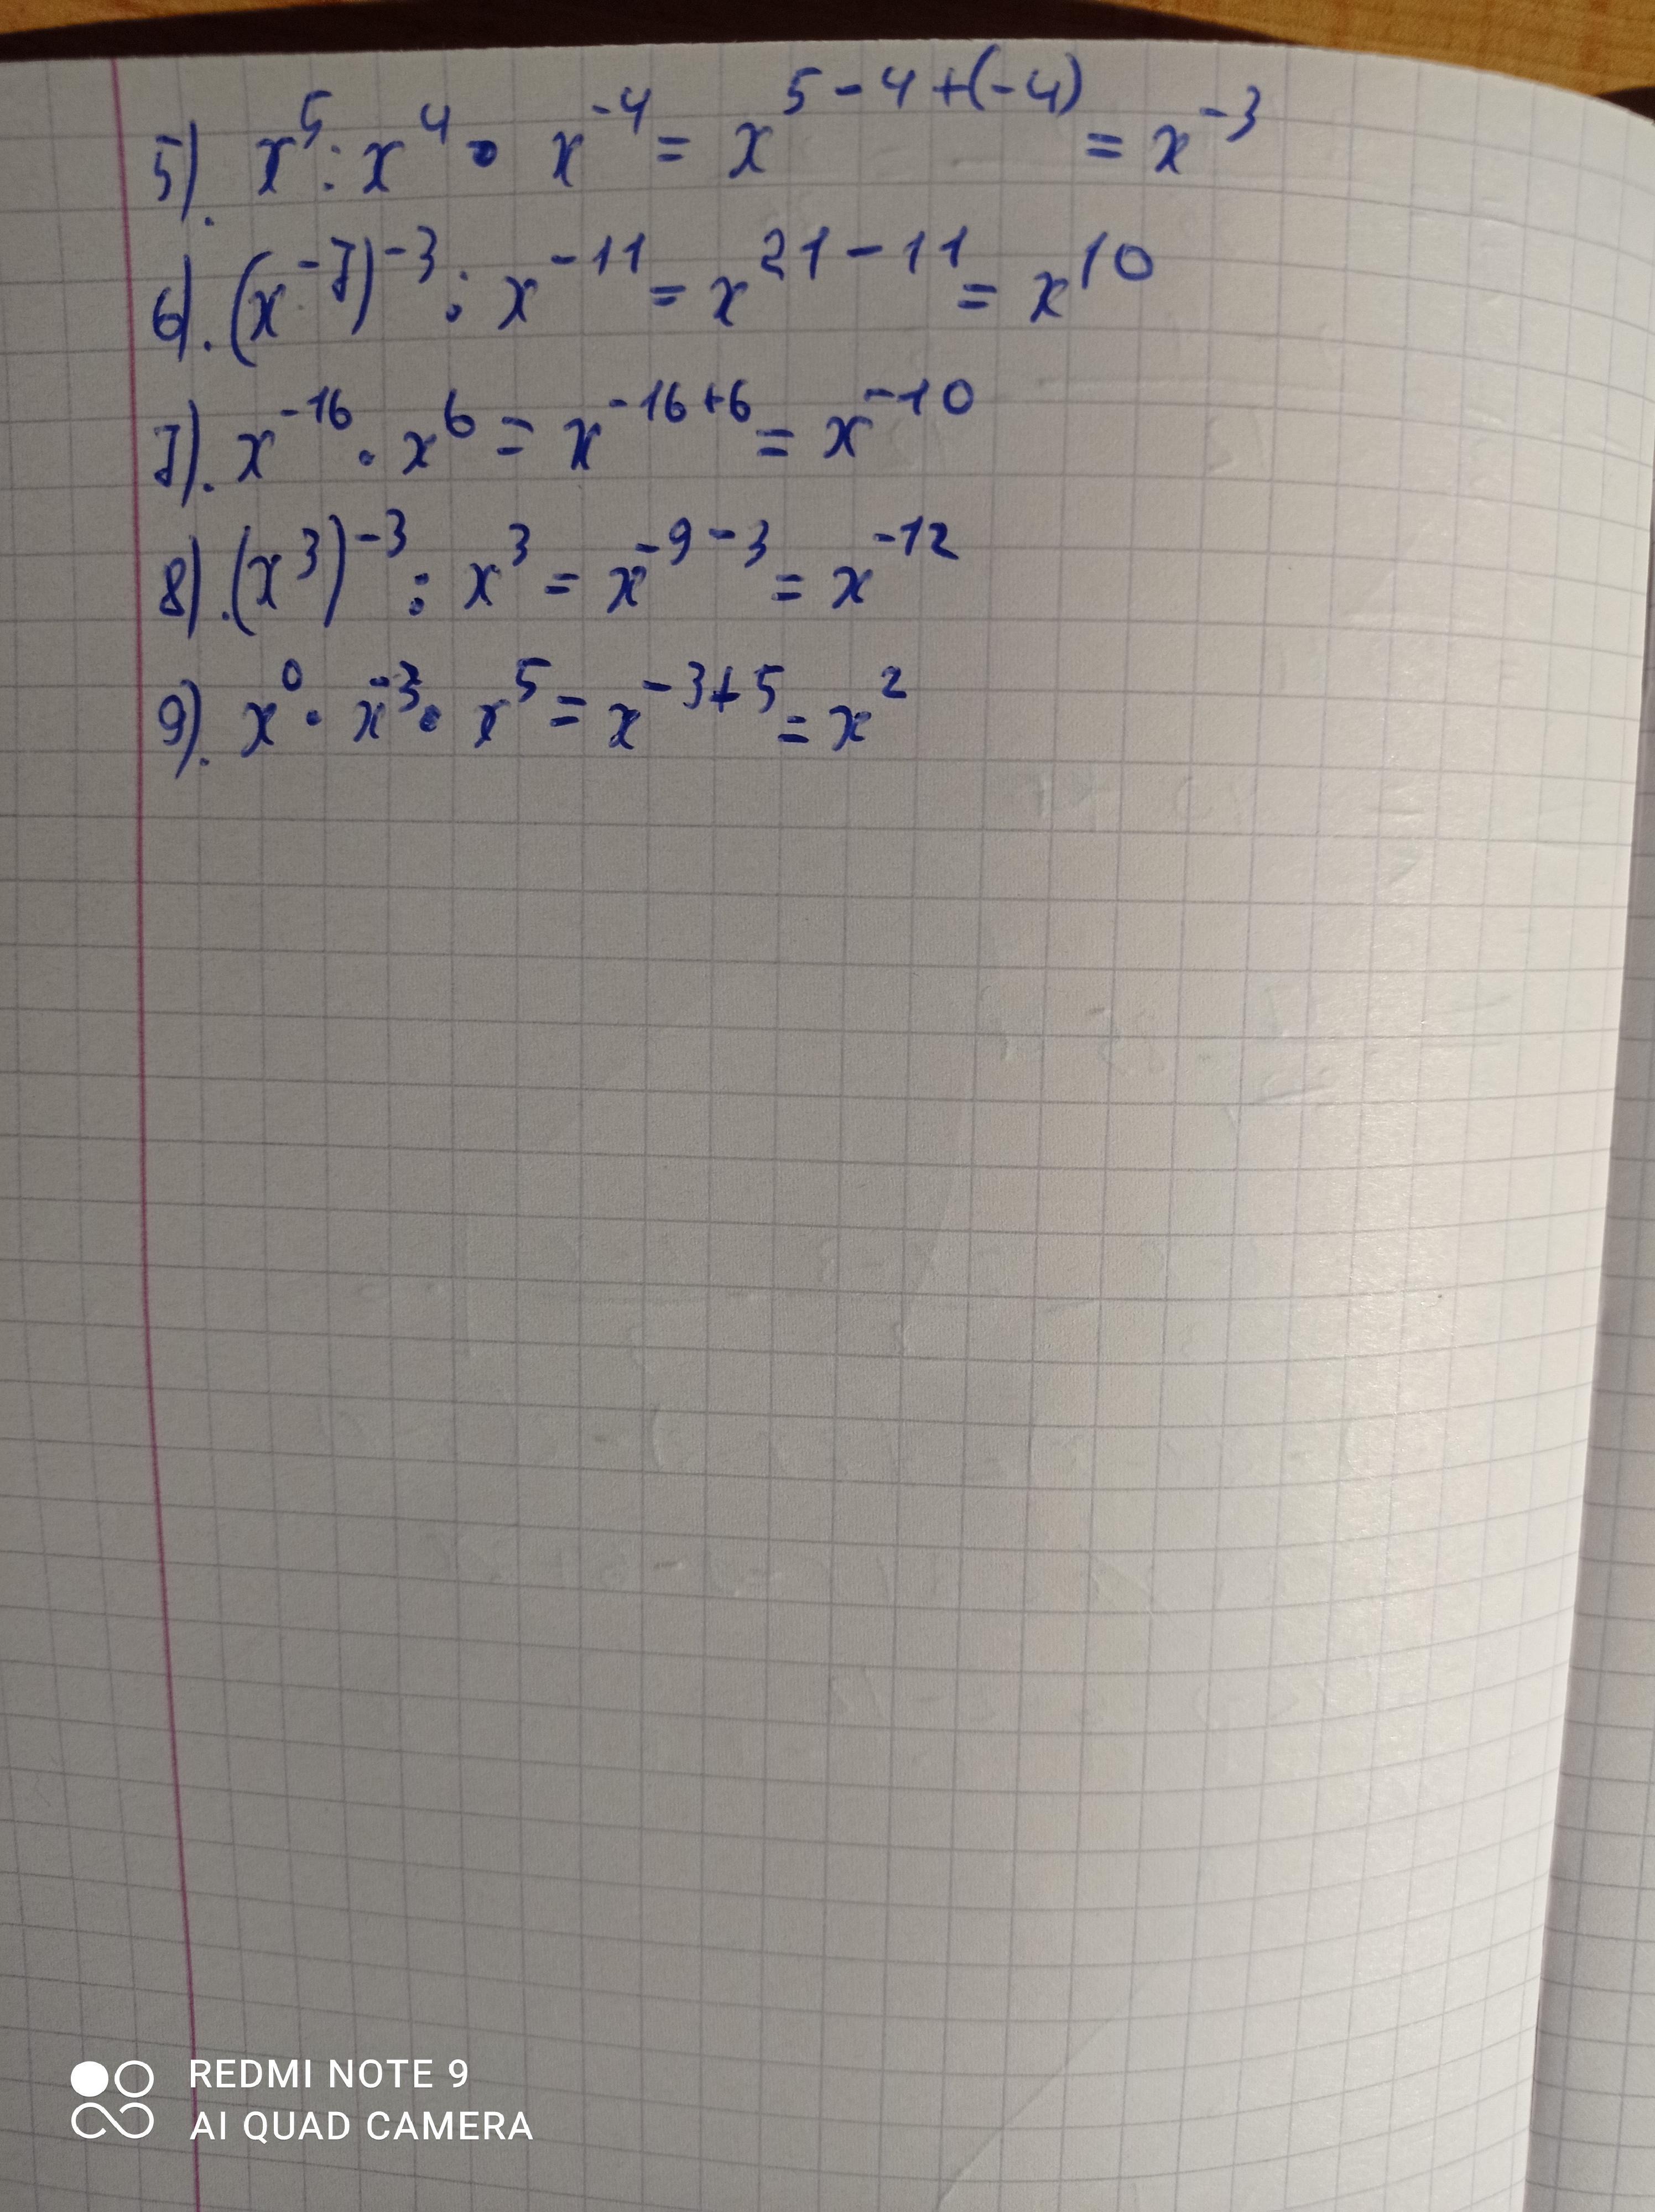 5). x⁵ : x⁴ • x⁻⁴ = x⁵⁻⁴⁺⁽⁻⁴⁾ = x⁻³
6). (x⁻⁷)⁻³ : x⁻¹¹ = x²¹⁻¹¹ = x¹⁰
7). x⁻¹⁶ • x⁶ = x⁻¹⁶⁺⁶ = x⁻¹⁰
8). (x³)⁻³ : x³ = x⁻⁹⁻³ = x⁻¹²
9). x⁰ • x⁻³ • x⁵ = x⁻³⁺⁵ = x²
REDMI NOTE 9
AI QUAD CAMERA